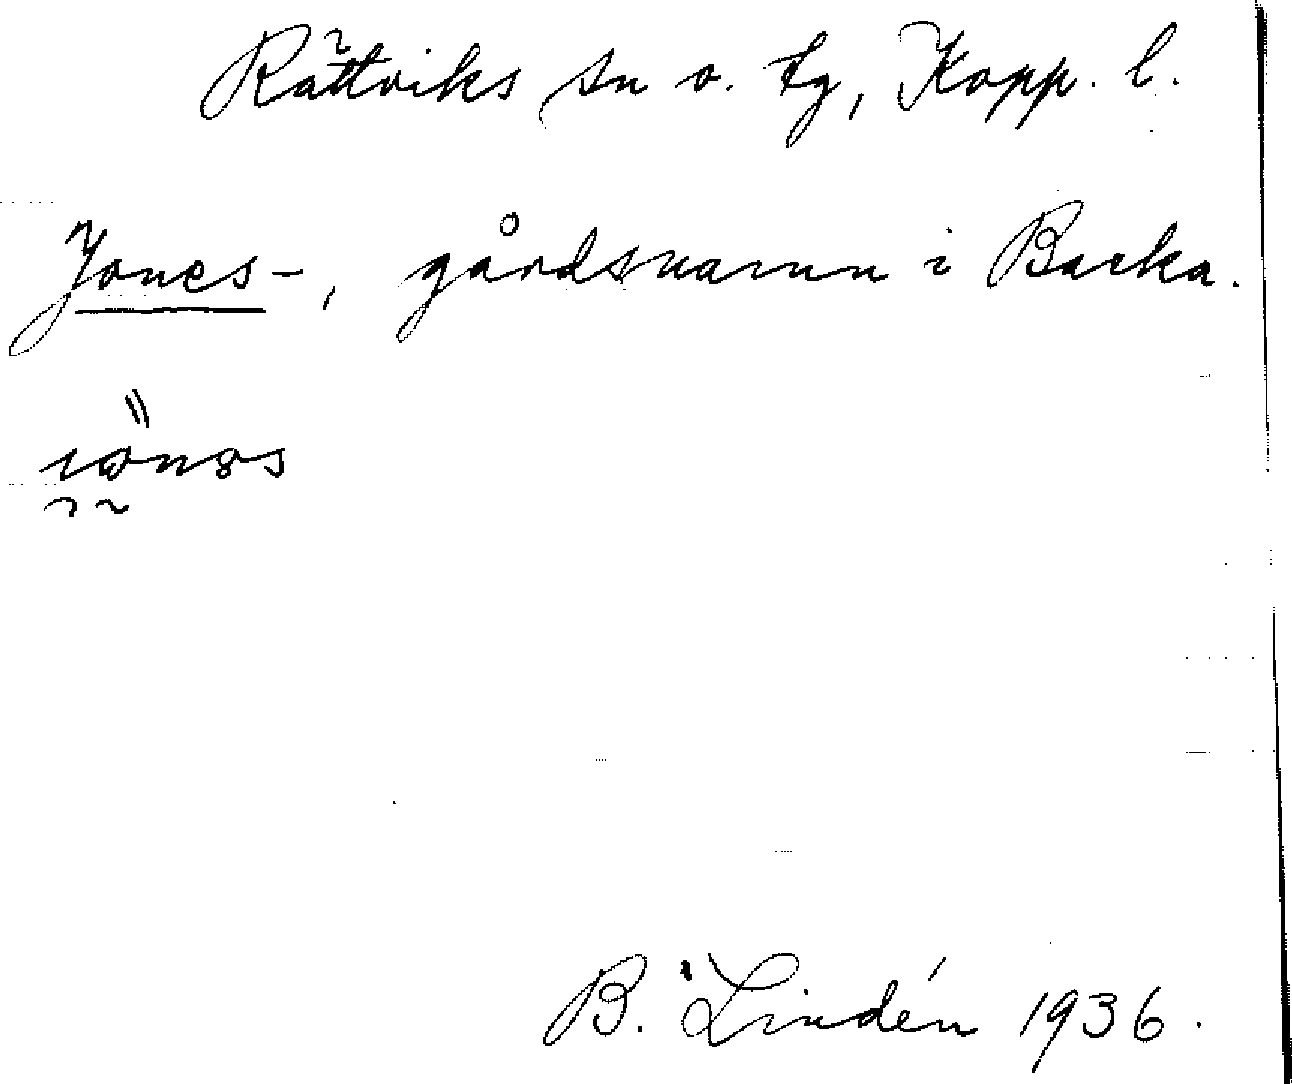 Rättviks sn o. tg, Kopp. l.
Jones-, gårdsnamn i Backa.
B. Lindén 1936.